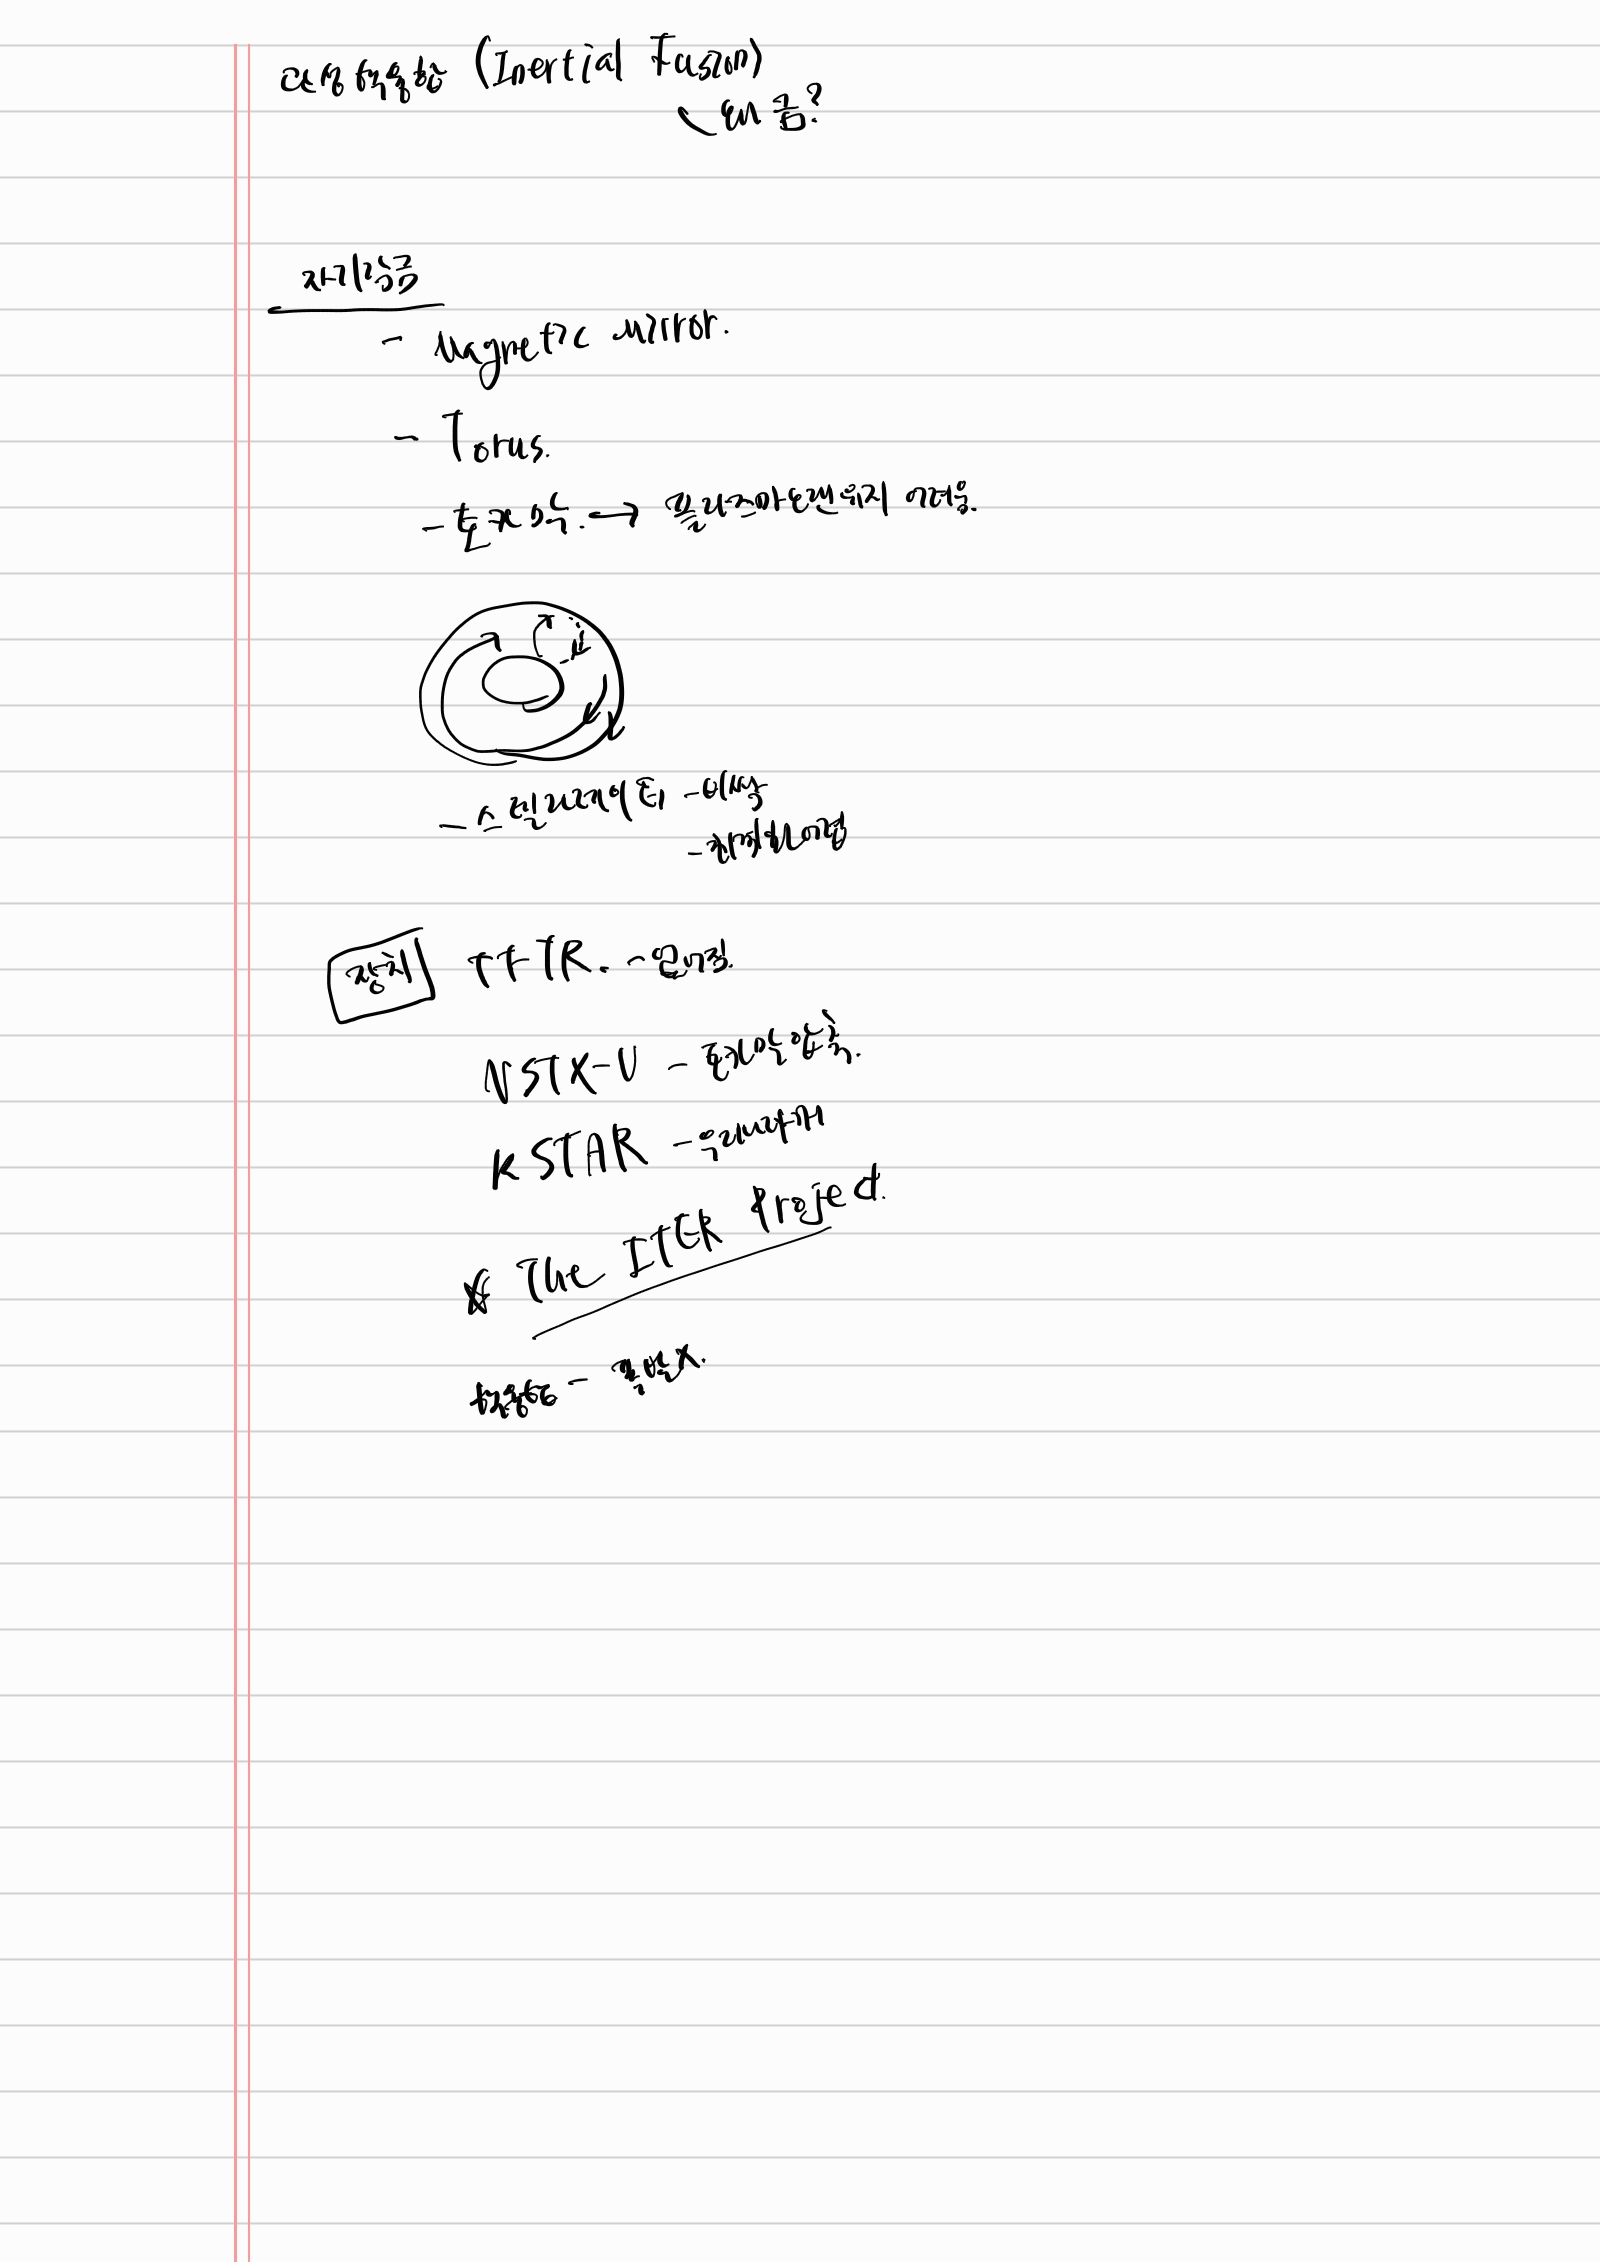 관성핵융합 (Inertial Fusion)
왜 금?
자기감금
- Magnetic mirror.
- Torus.
- 토카막. → 플라즈마오랜유지 어려움.
- 스텔러레이터 - 비쌈
- 최적화 어렵
장치 TFTR. - 없어짐.
NSTX-U - 토카막압축.
KSTAR - 우리나라꺼
☆ The ITER Project.
핵융합 - 폭발X.